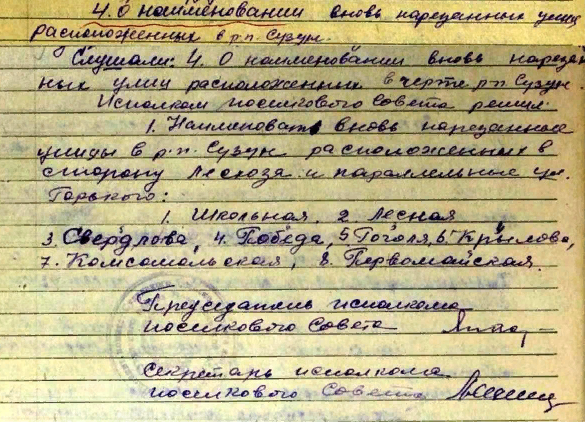 4. О наименовании вновь нарезанных улиц
расположенных в р.п. Сузун.
Слушали: 4. О наименовании вновь нарезан
ных улиц расположенных в черте р.п. Сузун.
Исполком поселкового совета решил:
1. Наименовать вновь нарезанные
улицы в р.п. Сузун расположенных в
сторону Лесхоза и параллельные ул.
Горького:
1. Школьная, 2. Лесная
3. Свердлова, 4. Победа, 5 Гоголя, 6. Крылова,
7. Комсомольская, 8. Первомайская.
Председатель исполкома
поселкового совета
Секретарь исполкома
поселкового совета